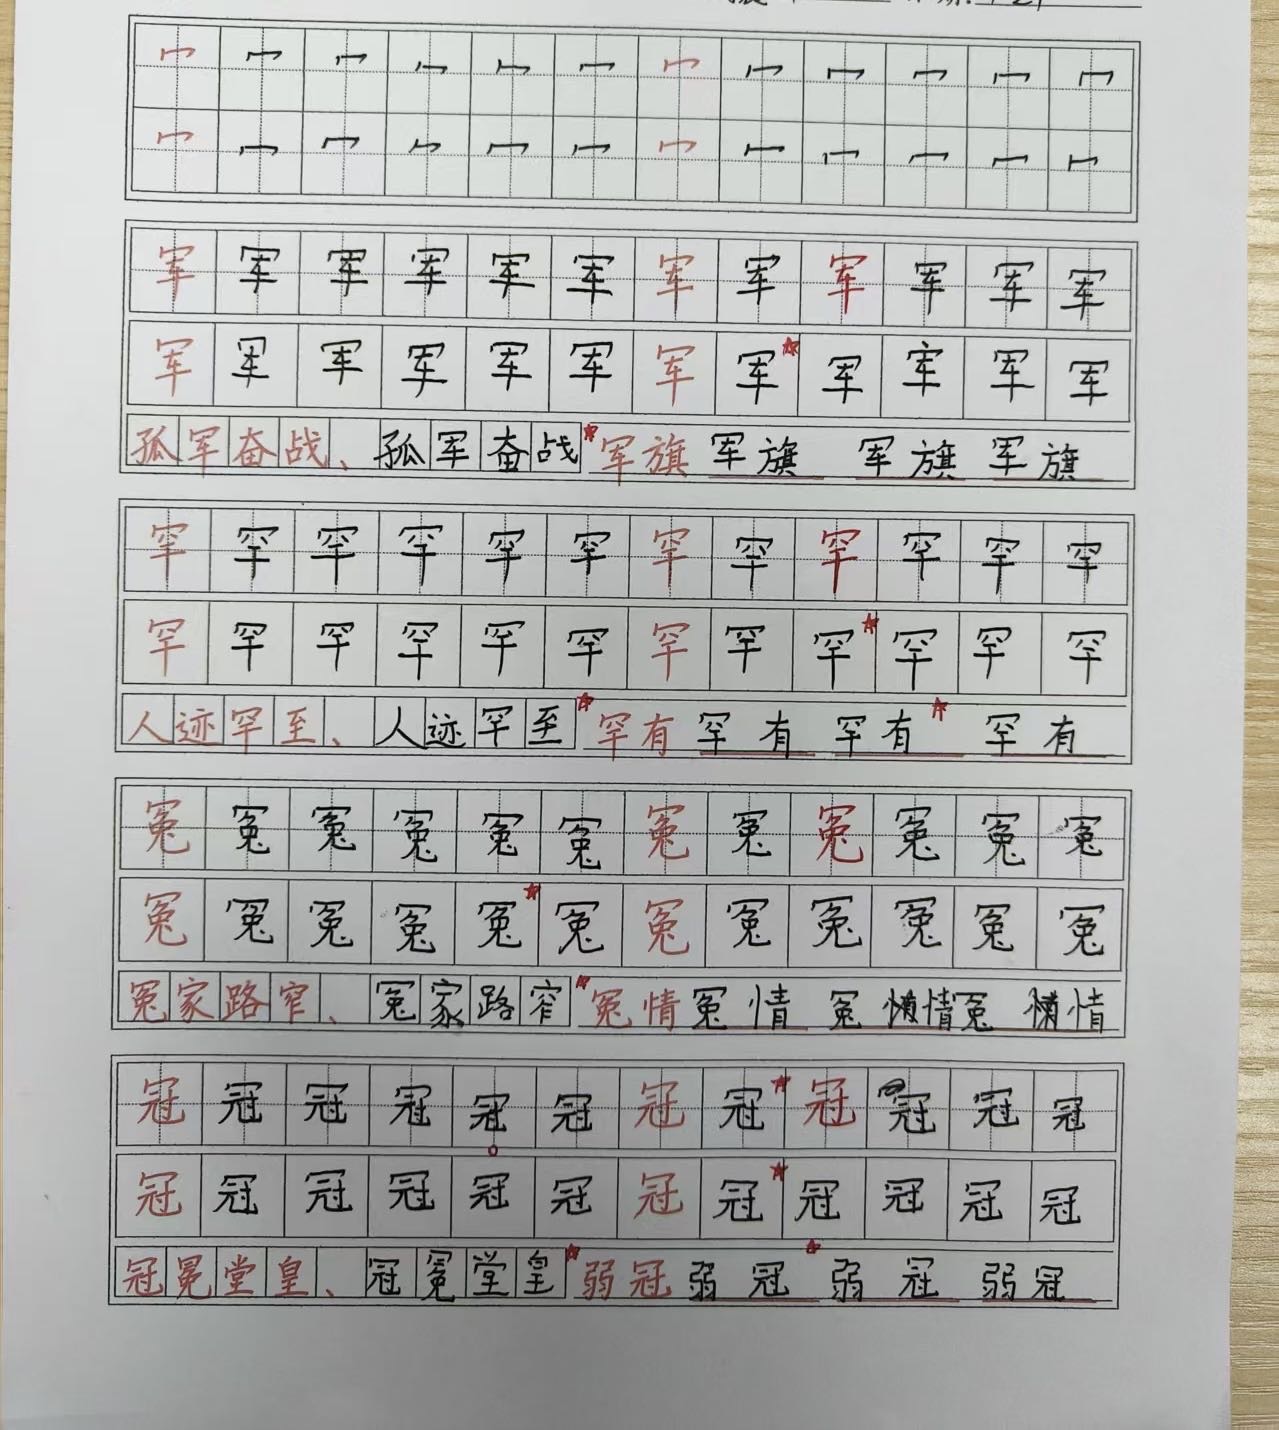 冖 冖 冖 冖 冖 冖 冖 冖 冖 冖 冖 冖
冖 冖 冖 冖 冖 冖 冖 冖 冖 冖 冖 冖
军 军 军 军 军 军 军 军 军 军 军 军
军 军 军 军 军 军 军 军 军 军 军 军
孤军奋战、孤军奋战 军旗 军旗 军旗 军旗
罕 罕 罕 罕 罕 罕 罕 罕 罕 罕 罕 罕
罕 罕 罕 罕 罕 罕 罕 罕 罕 罕 罕 罕
人迹罕至、人迹罕至 罕有 罕有 罕有 罕有
冤 冤 冤 冤 冤 冤 冤 冤 冤 冤 冤 冤
冤 冤 冤 冤 冤 冤 冤 冤 冤 冤 冤 冤
冤家路窄、冤家路窄 冤情 冤情 冤 情 冤 情
冠 冠 冠 冠 冠 冠 冠 冠 冠 冠 冠 冠
冠 冠 冠 冠 冠 冠 冠 冠 冠 冠 冠 冠
冠冕堂皇、冠冕堂皇 弱冠 弱冠 弱冠 弱冠